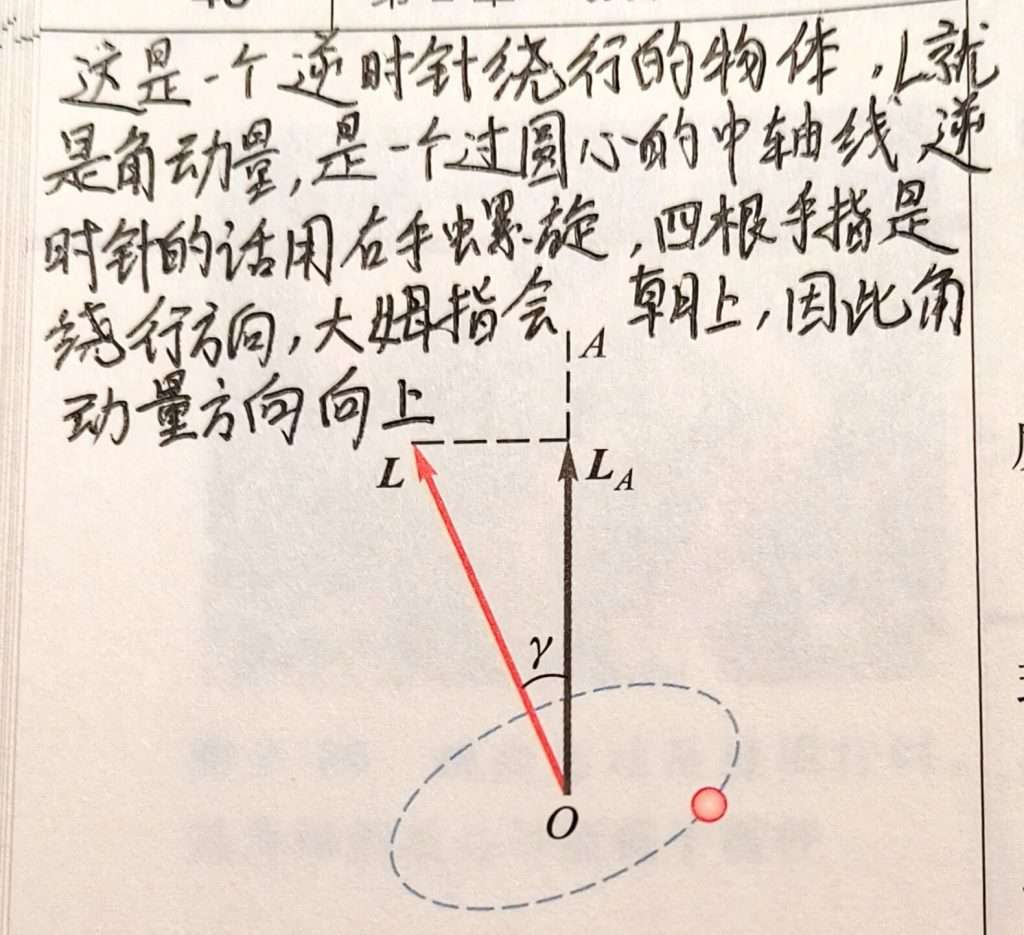 这是一个逆时针绕行的物体，L就
是角动量，是一个过圆心的中轴线，逆
时针的话用右手虫累旋，四根手指是
绕行方向，大姆指会 朝上，因此角
动量方向向上
A
L
L_A
γ
O